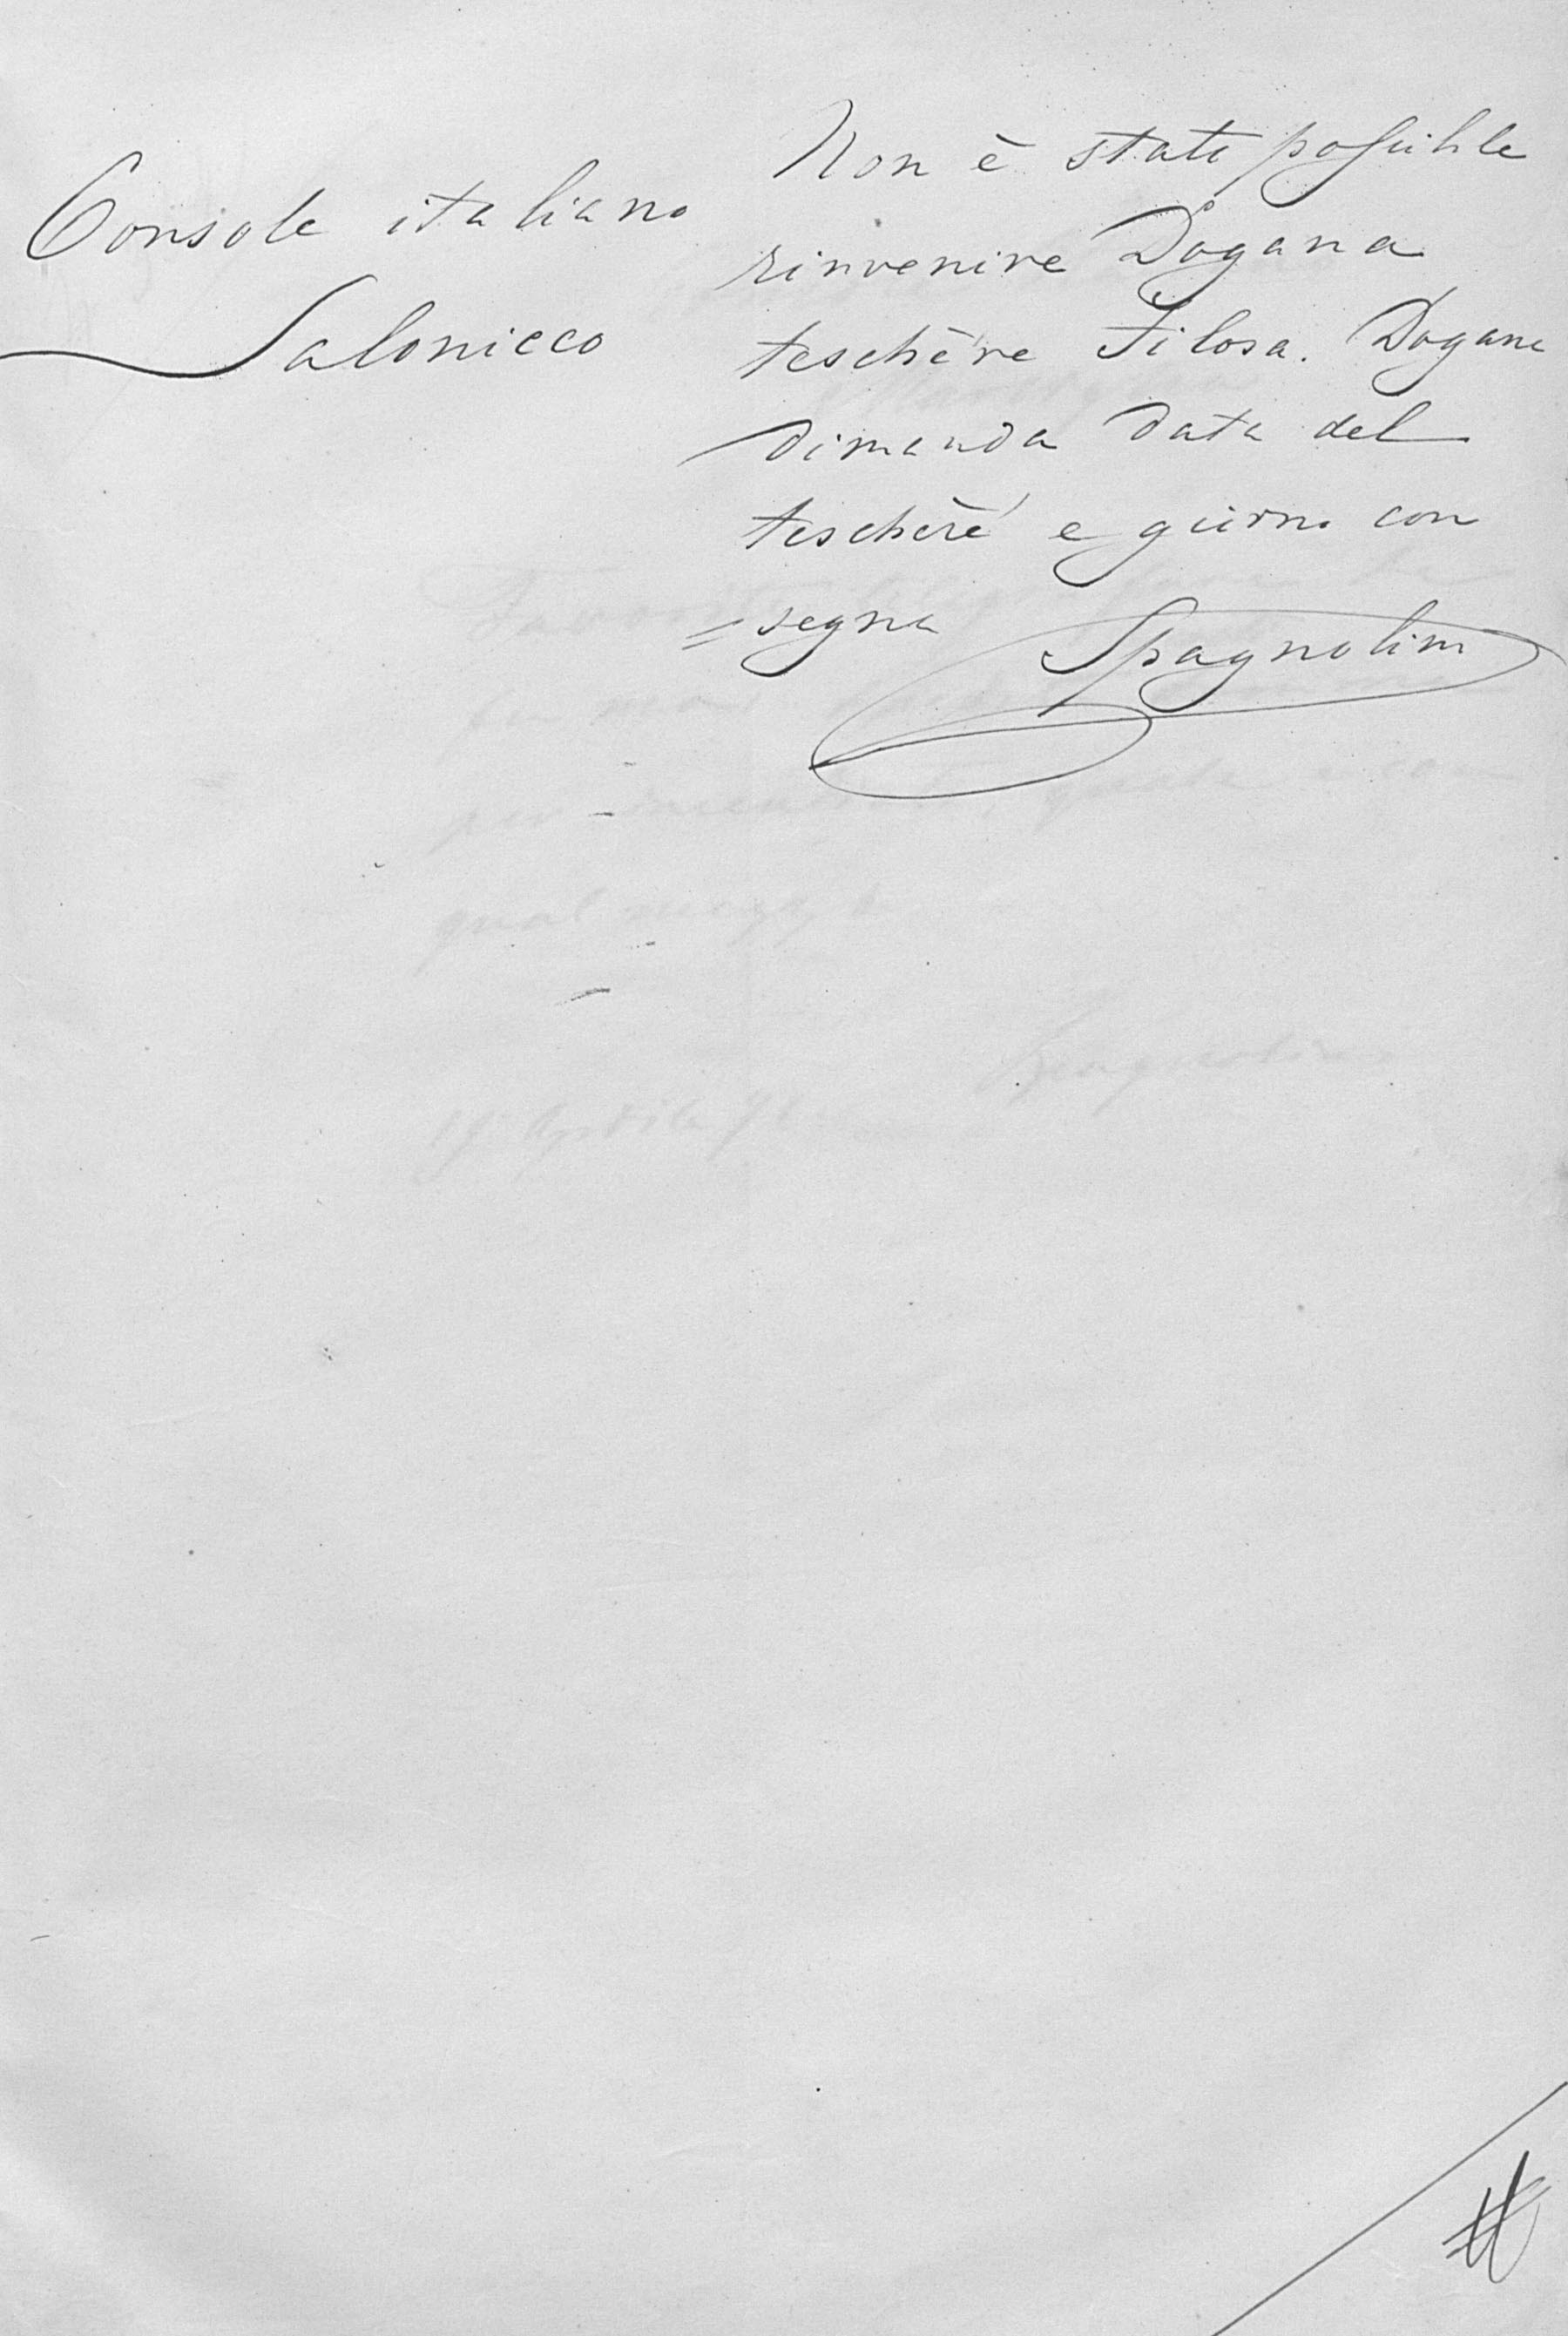 Console italiano
Salonicco
Non è stato possibile
rinvenire Dogana
teschère Filosa. Dogana
dimanda data del
tescherè e giorno con
= segna Spagnolini